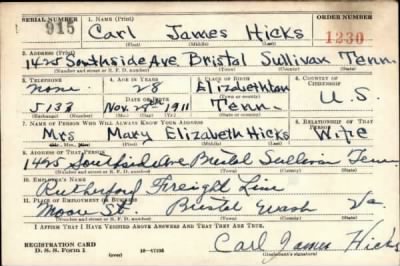 SERIAL NUMBER 1. NAME (Print) ORDER NUMBER
915 Carl James Hicks 1230
(First) (Middle) (Last)
2. ADDRESS (Print)
1425 Southside Ave Bristol Sullivan Tenn
(Number and street or R. F. D. number) (Town) (County) (State)
3. TELEPHONE 4. AGE IN YEARS 5. PLACE OF BIRTH 6. COUNTRY OF CITIZENSHIP
none 28 Elizabethton
DATE OF BIRTH U.S
5133 Nov. 1911 Tenn.
(Exchange) (Number) (Mo.) (Day) (Yr.) (State or country)
7. NAME OF PERSON WHO WILL ALWAYS KNOW YOUR ADDRESS 8. RELATIONSHIP OF THAT PERSON
Mrs Mary Elizabeth Hicks Wife
(Mr., Mrs., Miss) (First) (Middle) (Last)
9. ADDRESS OF THAT PERSON
1425 Southside Ave Bristol Sullivan Tenn
(Number and street or R. F. D. number) (Town) (County) (State)
10. EMPLOYER'S NAME
Rutherford Freight Line
11. PLACE OF EMPLOYMENT OR BUSINESS
Moore St. Bristol Wash Va.
(Number and street or R. F. D. number) (Town) (County) (State)
I AFFIRM THAT I HAVE VERIFIED ABOVE ANSWERS AND THAT THEY ARE TRUE.
REGISTRATION CARD
D. S. S. Form 1 (over) Carl James Hicks
(Registrant's signature)